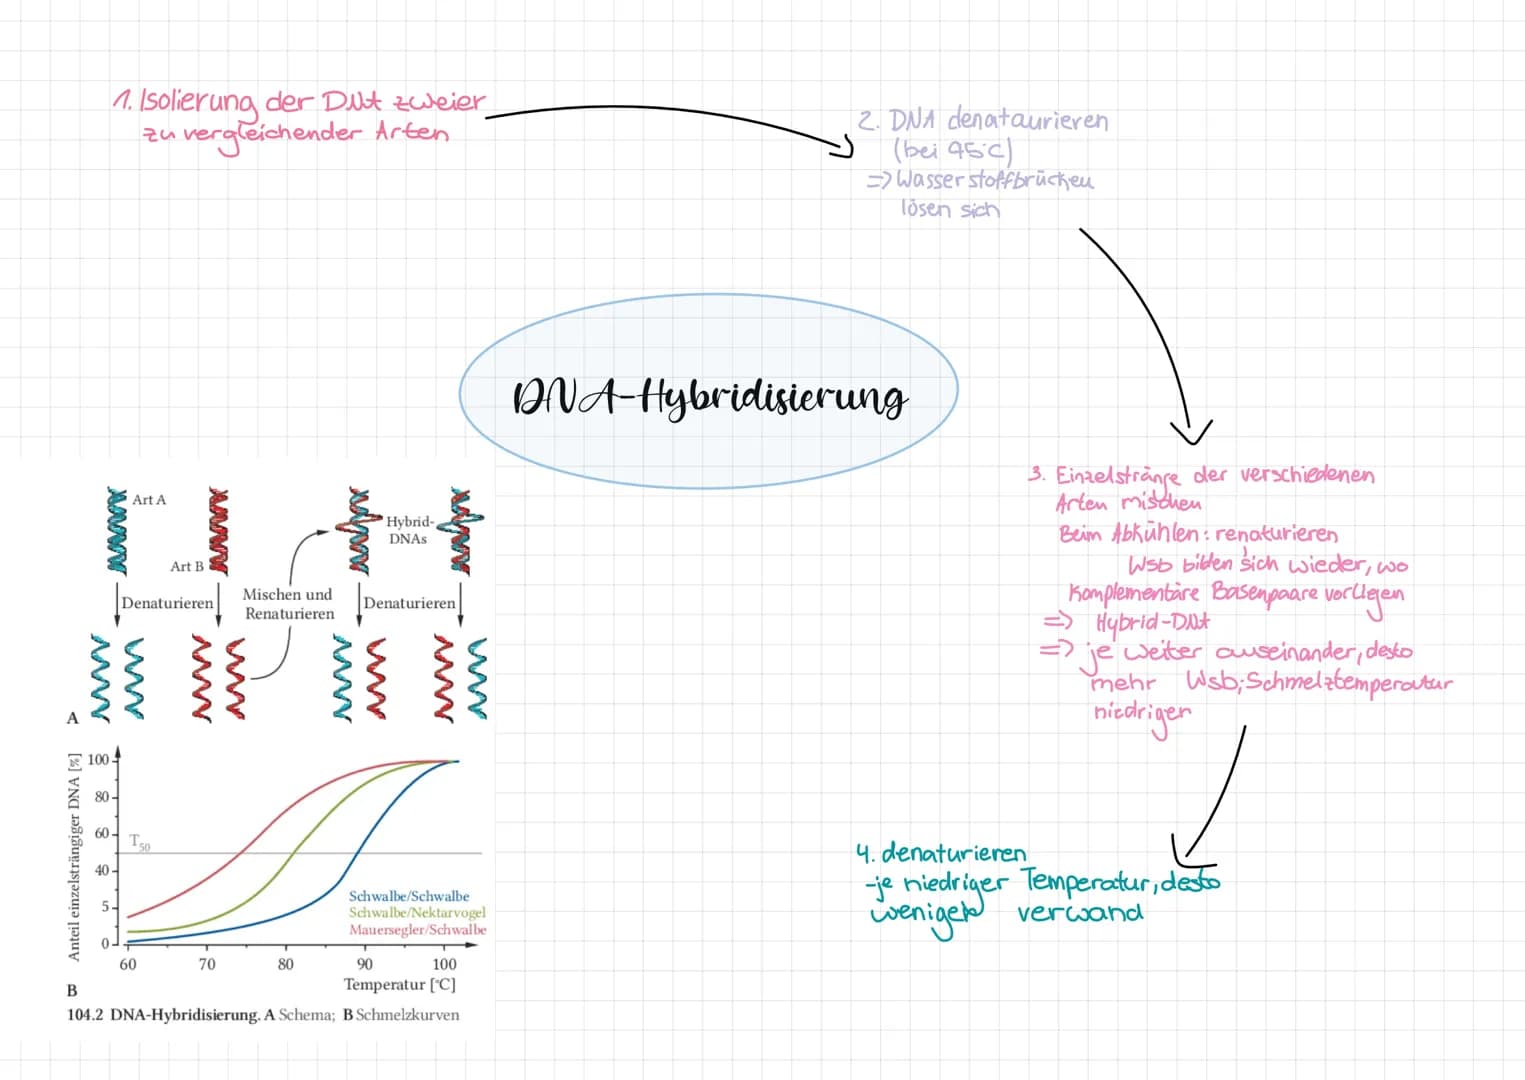 1. Isolierung der DNA zweier
zu vergleichender Arten
2. DNA denataurieren
(bei 95°C)
=> Wasserstoffbrücken
lösen sich
DNA-Hybridisierung
3. Einzelstränge der verschiedenen
Arten mischen
Beim Abkühlen: renaturieren
Wsb bilden sich wieder, wo
komplementäre Basenpaare vorliegen
=> Hybrid-DNA
=> je weiter auseinander, desto
mehr Wsb; Schmelztemperatur
niedriger
4. denaturieren
-je niedriger Temperatur, desto
weniger verwand
Art A
Art B
Hybrid-
DNAs
Denaturieren
Mischen und
Renaturieren
Denaturieren
A
Anteil einzelsträngiger DNA [%]
100
80
60
40
5
0
T50
Schwalbe/Schwalbe
Schwalbe/Nektarvogel
Mauersegler/Schwalbe
60 70 80 90 100
Temperatur [°C]
B
104.2 DNA-Hybridisierung. A Schema; B Schmelzkurven